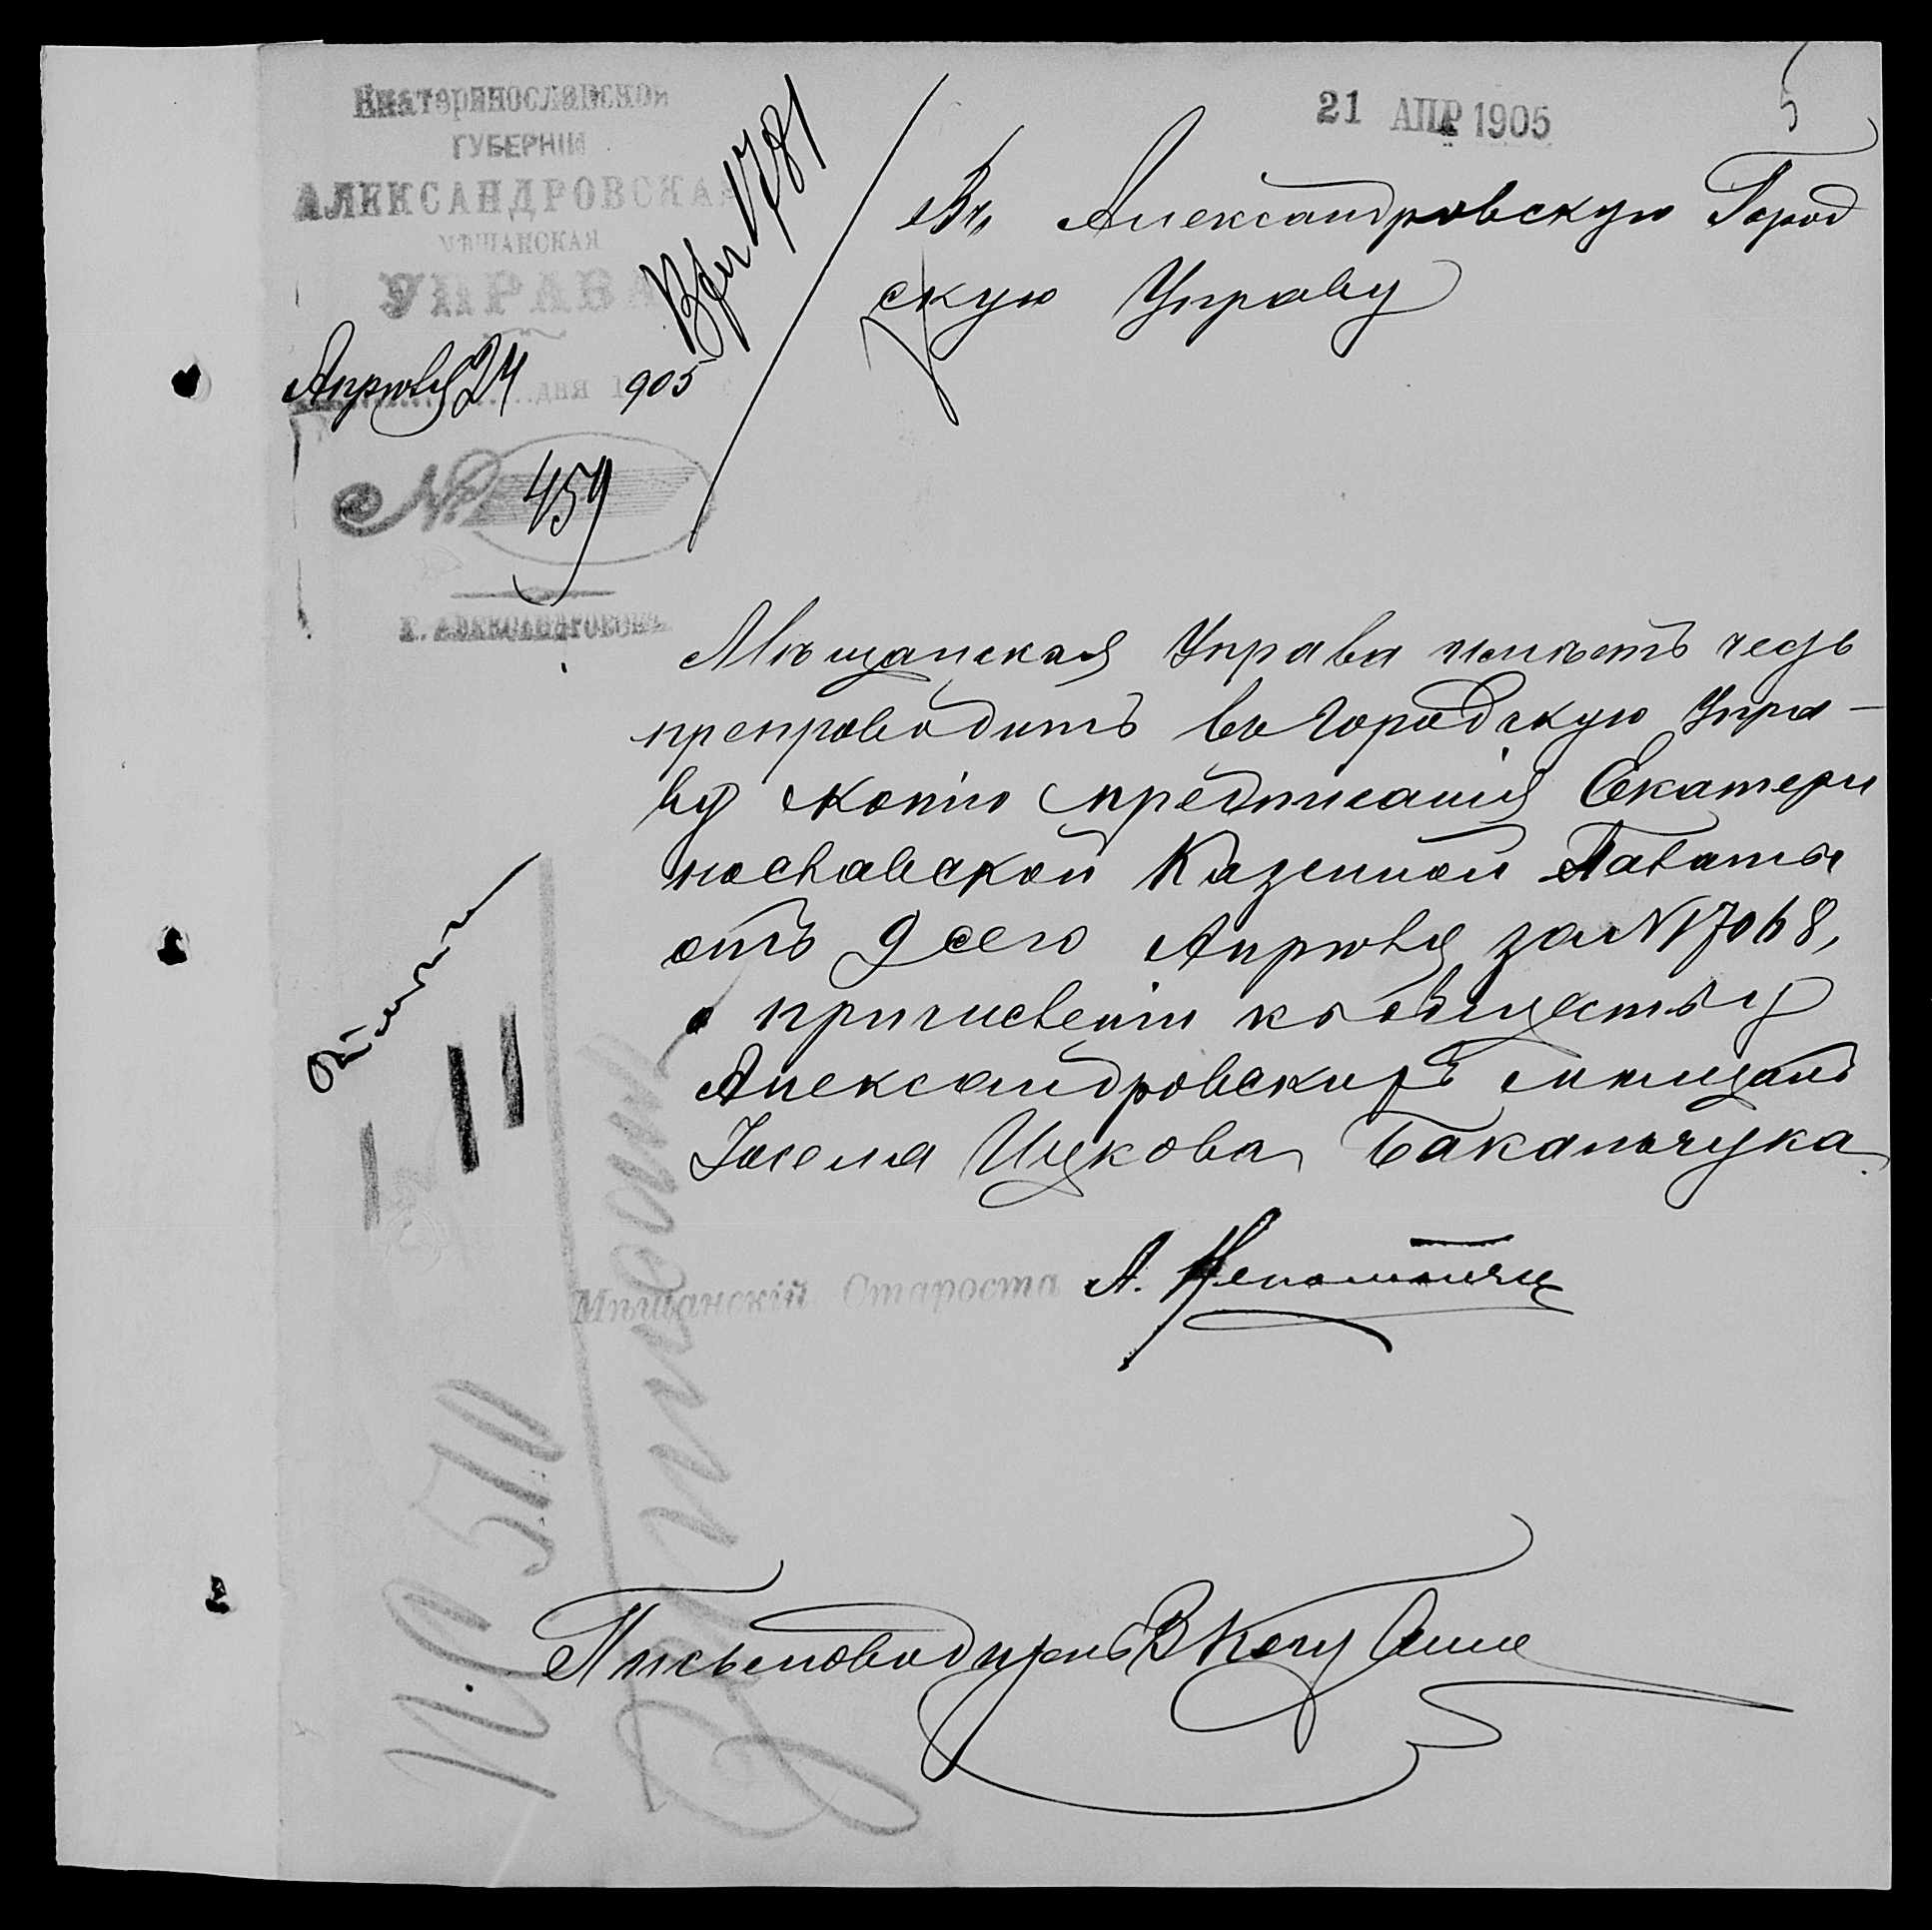 Екатеринославской
ГУБЕРНІИ
АЛЕКСАНДРОВСКАЯ
МѢЩАНСКАЯ
УПРАВА
Апрѣля 21 дня 1905
№ 459
Г. АЛЕКСАНДРОВСКЪ
21 АПР 1905
5
Въ Александровскую Город
скую Управу
Мѣщанская Управа имѣетъ честь
препроводить въ Городскую Упра-
ву копію предписанія Екатери
нославской Казенной Палаты
отъ 9 сего Апрѣля за № 17068,
о причисленіи къ обществу
Александровскихъ мѣщанъ
Иоселя Ицкова Бакальчука
Мѣщанскій Староста А.
Письмоводитель В
№ 510